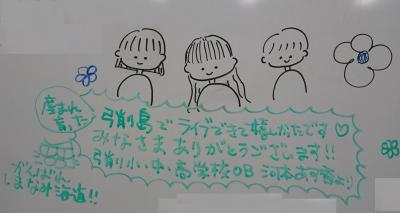 産まれ
育った
弓削島でライブできて嬉しかったです♡
みなさまありがとうございます!!
弓削小・中・高学校OB 河本あす香より
がんばれ
しまなみ海道!!